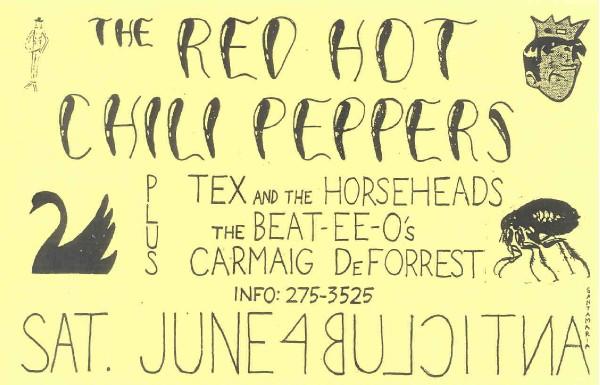 THE RED HOT
CHILI PEPPERS
PLUS
TEX AND THE HORSEHEADS
THE BEAT-EE-O's
CARMAIG DeFORREST
INFO: 275-3525
SAT. JUNE 4 BULCITNA
SANTAMARIA